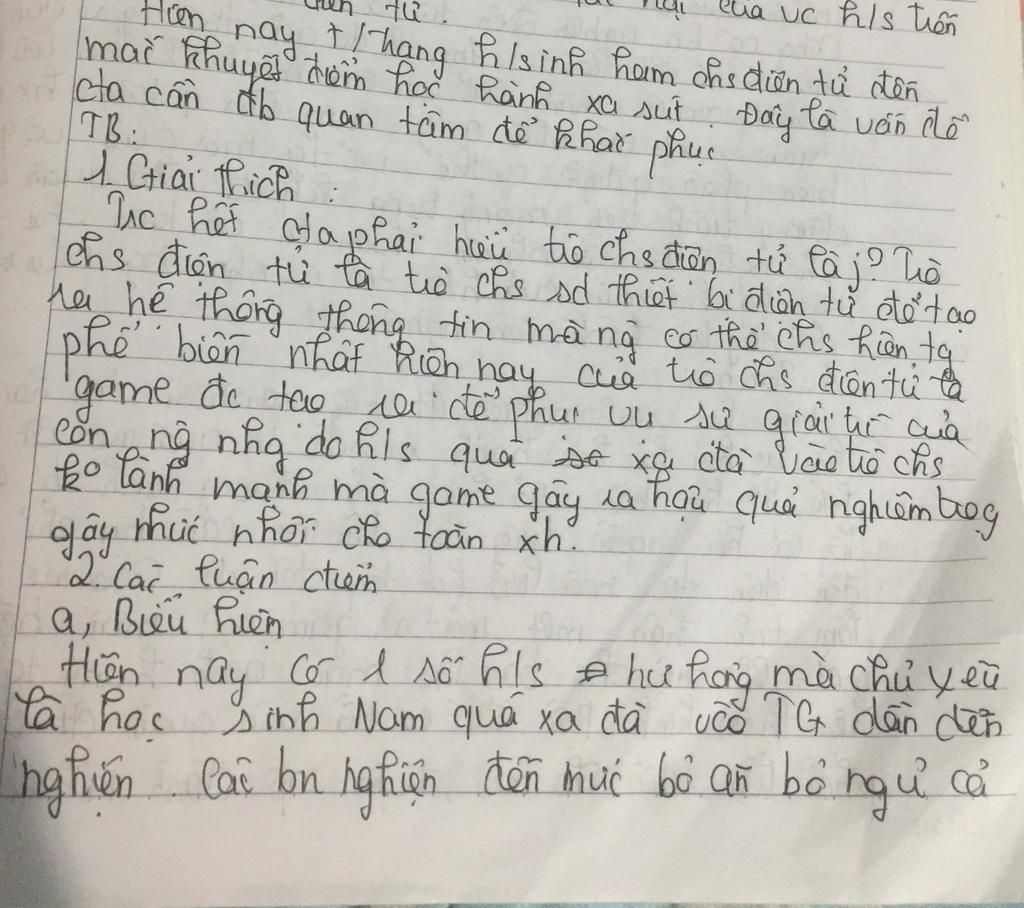 điện tử. của vc h/s trốn
Hiện nay t/trạng h/sinh ham chs điện tử đến
mắc khuyết điểm học hành xa sút. Đây là vấn đề
cta cần đb quan tâm để khắc phục
TB:
1. Giải thích:
Trc hết cta phải hiểu trò chs điện tử là j? Trò
chs điện tử là trò chs sd thiết bị điện tử để tạo
ra hệ thống thông tin mà ng có thể chs hiện tg
phổ biến nhất hiện nay của trò chs điện tử là
game đc tạo ra để phục vụ sự giải trí của
con ng nhg do h/s quá xa đà vào trò chs
ko lành mạnh mà game gây ra hậu quả nghiêm trog
gây nhức nhối cho toàn xh.
2. Các luận điểm
a, Biểu hiện
Hiện nay có 1 số h/s hư hỏng mà chủ yếu
là học sinh Nam quá xa đà vào TG dẫn đến
nghiện. Các bn nghiện đến mức bỏ ăn bỏ ngủ cả